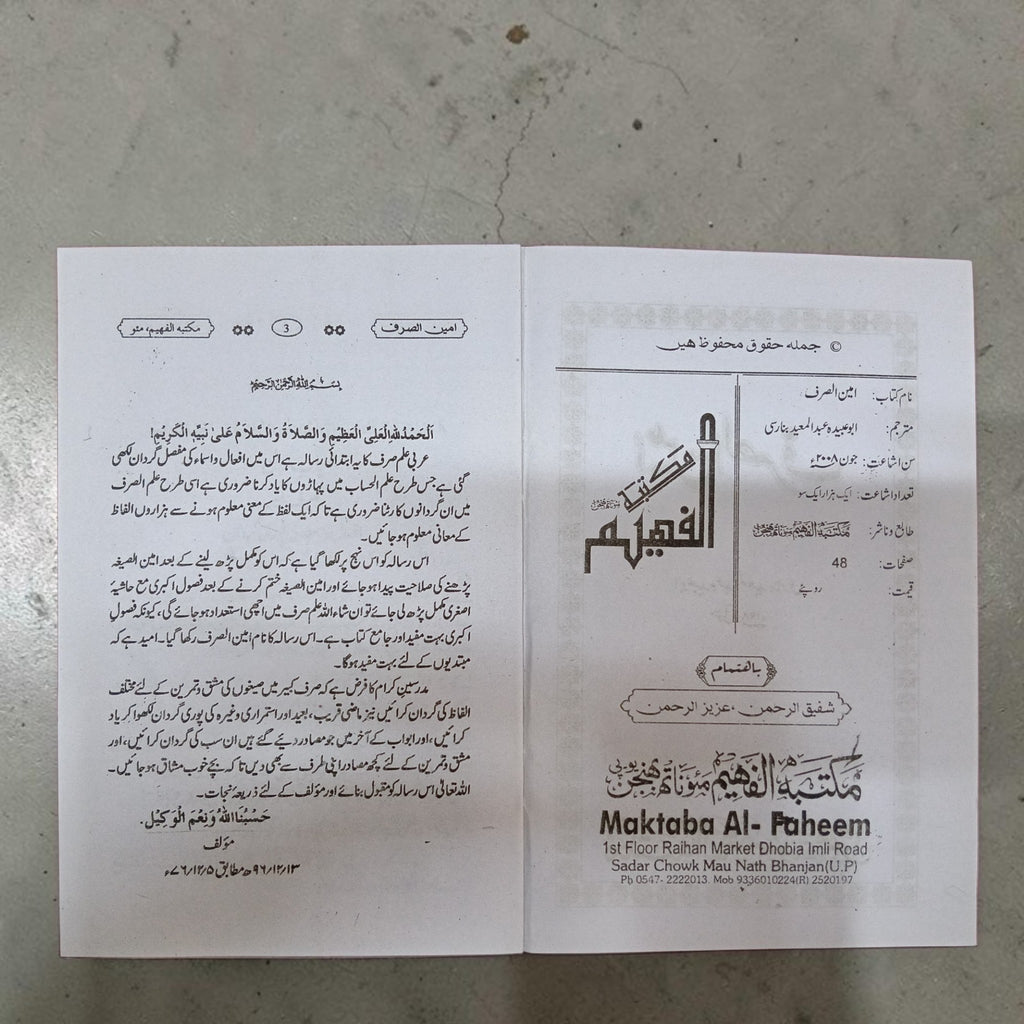 © جمله حقوق محفوظ هیں
نام کتاب: امین الصرف
مترجم: ابوعبیدہ عبدالمعید بنارسی
سن اشاعت: جون ۲۰۰۸ء
تعداد اشاعت: ایک ہزار ایک سو
طابع وناشر: مکتبہ الفہیم مئوناتھ بھنجن
صفحات: 48
قیمت: روپئے
مکتبہ
الفهیم
باهتمام
شفیق الرحمن ، عزیز الرحمن
مکتبہ الفہیم مئوناتھ بھنجن یوپی
Maktaba Al- Faheem
1st Floor Raihan Market Dhobia Imli Road
Sadar Chowk Mau Nath Bhanjan(U.P)
Ph 0547- 2222013. Mob 9336010224(R) 2520197
امین الصرف 3 مکتبه الفهیم، مئو
بسم الله الرحمن الرحیم
اَلْحَمْدُ لِلّٰهِ الْعَلِیِّ الْعَظِیْمِ وَالصَّلاَةُ وَالسَّلاَمُ عَلیٰ نَبِیِّهِ الْکَرِیْمِ!
عربی علم صرف کا یہ ابتدائی رسالہ ہے اس میں افعال واسماء کی مفصل گردان لکھی
گئی ہے جس طرح علم الحساب میں پہاڑوں کا یاد کرنا ضروری ہے اسی طرح علم الصرف
میں ان گردانوں کا رٹنا ضروری ہے تا کہ ایک لفظ کے معنی معلوم ہونے سے ہزاروں الفاظ
کے معانی معلوم ہو جائیں۔
اس رسالہ کو اس نہج پر لکھا گیا ہے کہ اس کو مکمل پڑھ لینے کے بعد امین الصیغہ
پڑھنے کی صلاحیت پیدا ہو جائے اور امین الصیغہ ختم کرنے کے بعد فصول اکبری مع حاشیۂ
اصغری مکمل پڑھ لی جائے تو ان شاء اللہ علم صرف میں اچھی استعداد ہو جائے گی، کیونکہ فصول
اکبری بہت مفید اور جامع کتاب ہے۔ اس رسالہ کا نام امین الصرف رکھا گیا۔ امید ہے کہ
مبتدیوں کے لئے بہت مفید ہوگا۔
مدرسین کرام کا فرض ہے کہ صرف کبیر میں صیغوں کی مشق وتمرین کے لئے مختلف
الفاظ کی گردان کرائیں نیز ماضی قریب، بعید اور استمراری وغیرہ کی پوری گردان لکھوا کر یاد
کرائیں، اور ابواب کے آخر میں جو مصادر دیئے گئے ہیں ان سب کی گردان کرائیں، اور
مشق وتمرین کے لئے کچھ مصادر اپنی طرف سے بھی دیں تا کہ بچے خوب مشاق ہو جائیں۔
اللہ تعالیٰ اس رسالہ کو مقبول بنائے اور مؤلف کے لئے ذریعۂ نجات۔
حَسْبُنَا اللّٰهُ وَنِعْمَ الْوَکِیْل.
مؤلف
۹۶/۱۲/۱۳ھ مطابق ۷۶/۱۲/۵ء